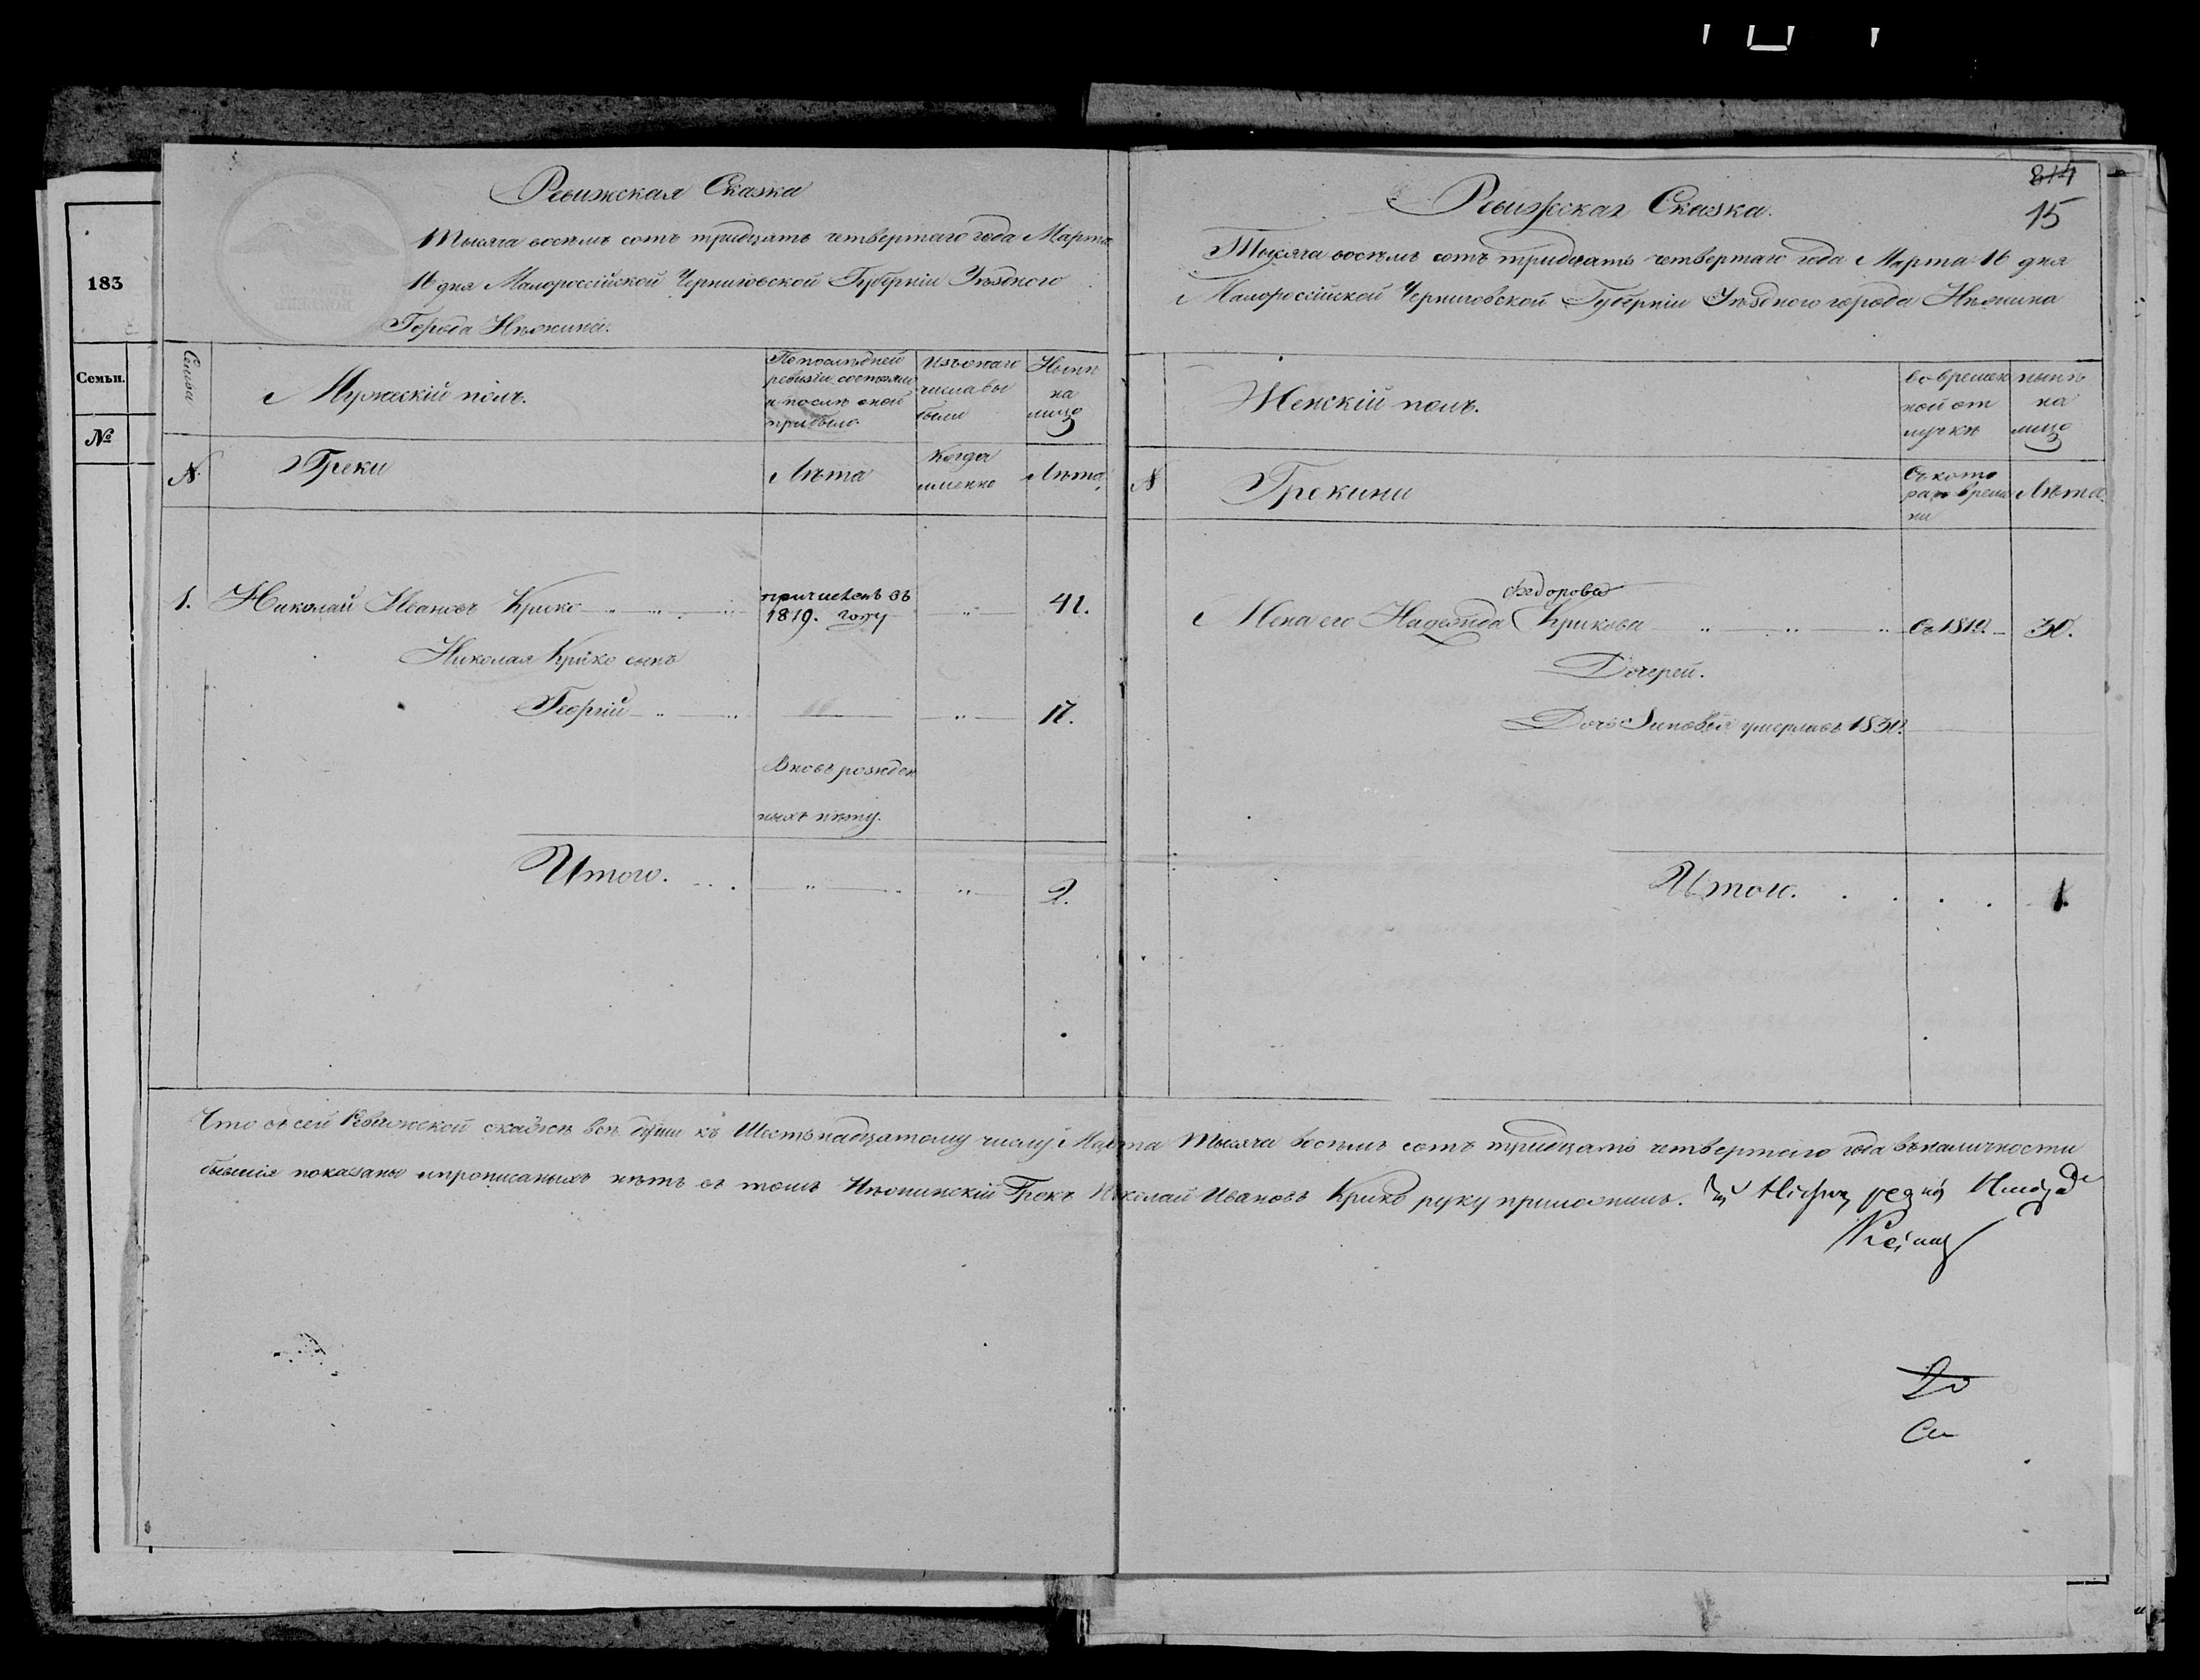 183
Семьи.
№
Ревижская Сказка
Тысяча восемь сотъ тридцать четвертаго года Марта
16 дня Малороссійской Черниговской Губерніи Уѣздного
Города Нѣжина.
Семья
Мужескій полъ.
По послѣдней
ревизіи состояло
и послѣ оной
прибыло.
Изъ онаго
числа вы
были
Нынѣ
на
лицо
№.
Греки
Лѣта
Когда
именно
Лѣта
1. Николай Ивановъ Крико
причисленъ въ
1819. году
41.
Николая Крико сынъ
Георгій
17.
Вновь рожден
ныхъ нѣту.
Итого.
2.
814
15
Ревижская Сказка.
Тысяча восемь сотъ тридцать четвертаго года Марта 16 дня
Малороссійской Черниговской Губерніи Уѣздного города Нѣжина
Женскій полъ.
во времен
ной от
лучкѣ
нынѣ
на
лицо
№
Грекини
Съ кото
раго време
ни
Лѣта.
Федорова
Жена его Надежда Крикова
30.
Дочерей.
Дочь Зиновія умерла въ 1830.
Итого.
1.
Что въ сей Ревижской сказкѣ всѣ души къ Шестьнадцатому числу Марта Тысяча восемь сотъ тридцать четвертаго года въ наличности
бывшія показаны и прописаныхъ нѣтъ въ томъ Нѣжинскій Грекъ Николай Ивановъ Крико руку приложилъ.